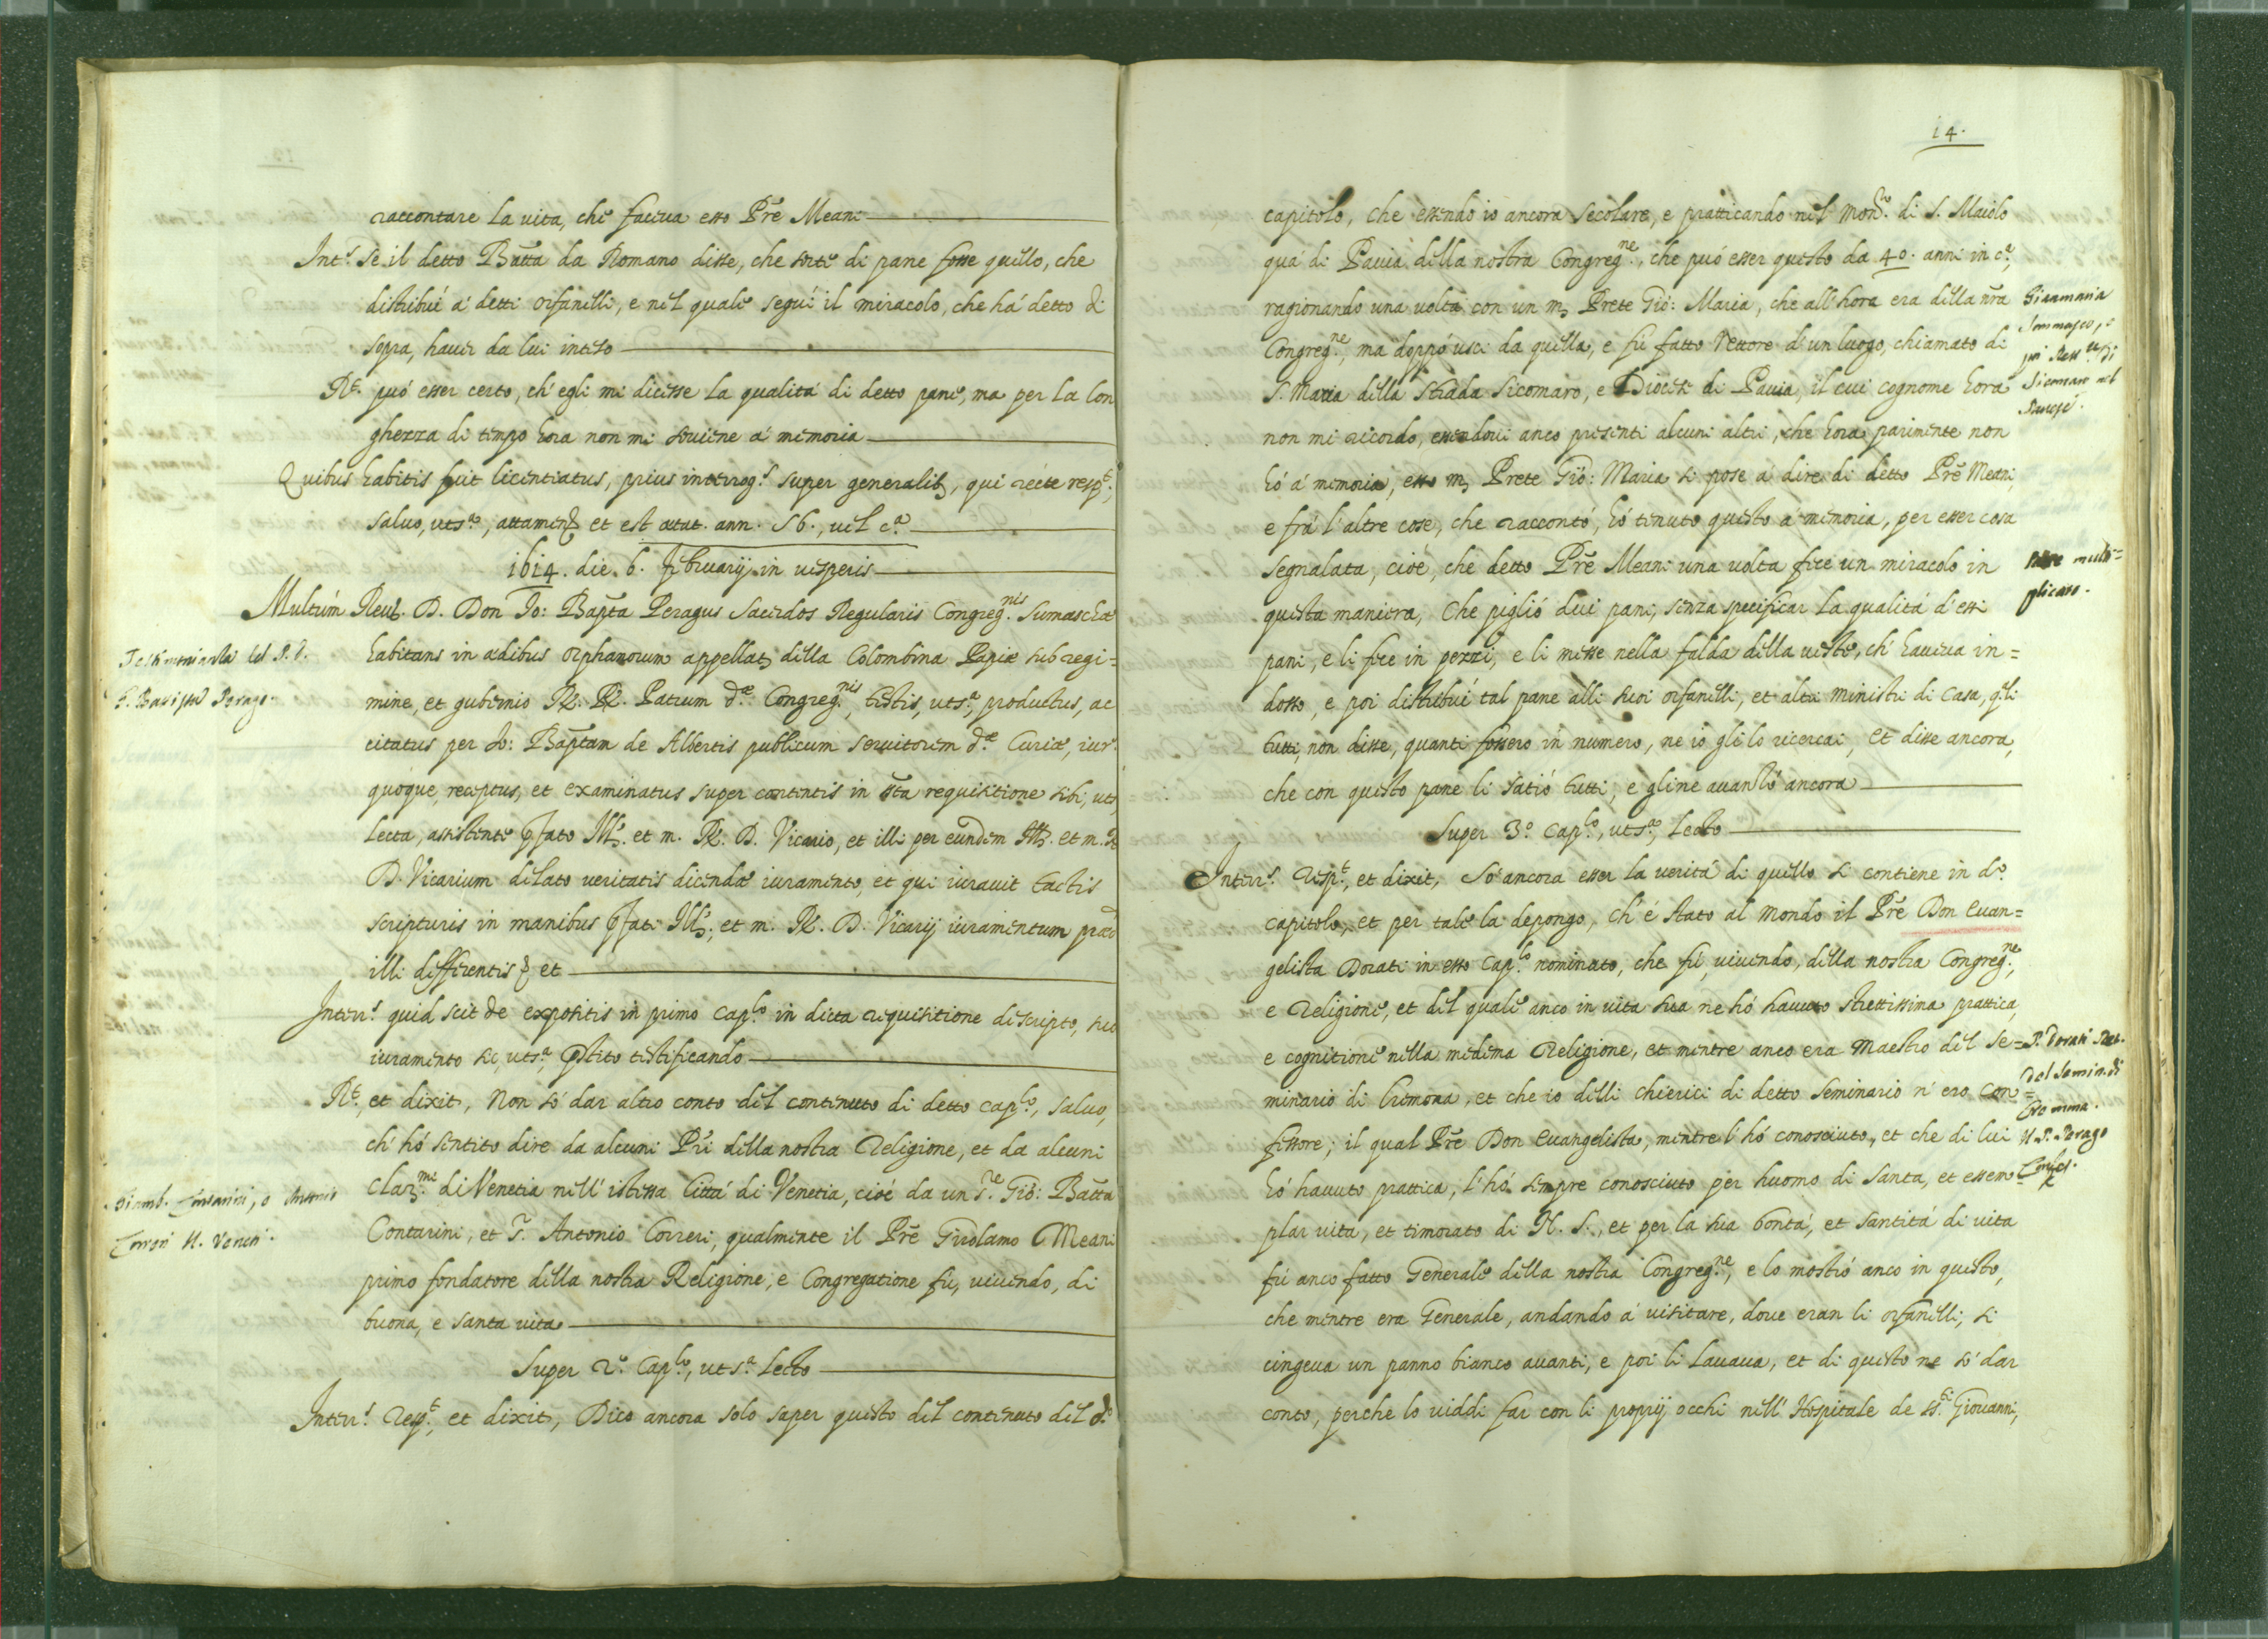 raccontare la vita, che faceva esso Pre Meani
Int.s se il detto Batta da Romano disse, che sorte di pane fosse quello, che
distribuì à detti orfanelli, e nel quale seguì il miracolo, che há detto di
sopra, haver da lui inteso
R.t può esser certo, ch'egli mi dicesse la qualità di detto pane, ma per la lon
ghezza di tempo hora non mi soviene à memoria
Quibus habitis fuit licentiatus, prius interrog.s super generalib, qui récte resp.t,
salvo, uts.a, attamen et est ætat. ann. 56., vel c.a
1614. die. 6. februarij in vesperis
Multùm Reu. D. Don Jo: Bapta Peragus Sacerdos Regularis Congreg.nis Sumaschæ
Testimonianza del P. D.
habitans in ædibus orphanorum appellat, della Colombina Papiæ sub regi=
G. Battista Perago.
mine, et gubernio R. R. Patrum d.æ Congreg.nis, testis, uts.a, productus, ac
citatus per Jo: Baptam de Albertis publicum servitorem d.æ Curiæ, iur.
quoque, receptus, et examinatus super contentis in sta requisitione sibi, uts
lecta, assistente pfato Ill. et m. R. D. Vicario, et illi per eundem Ill. et m. R
D. Vicarium delato veritatis dicendæ iuramento, et qui iuravit tactis
scripturis in manibus pfati Ill. et m. R. D. Vicarij iuramentum præd
illi differentis, et
Inter.s quid scit de expositis in primo cap.lo in dicta requisitione descripto, suo
iuramento sic, uts.a pstito testificando
R.t, et dixit, Non só dar altro conto del contenuto di detto cap.lo, salvo,
ch' hó sentito dire da alcuni Pri della nostra Religione, et da alcuni
Clar.mi di Venetia nell' istessa Città di Venetia, cioé da un S.re Gio: Batta
Giamb. Contarini, e Antonio
Contarini, et S. Antonio Correri, qualmente il Pre Girolamo Meani
Correri N. Veneti.
primo fondatore della nostra Religione, e Congregatione fu, vivendo, di
buona, e santa vita
Super 2.o Cap.lo, uts.a lecto
Inter.s Resp.t, et dixit, Dico ancora solo saper questo del contenuto del d.o
14.
capitolo, che essendo io ancora secolare, e pratticando nel Mon.ro di S. Maiolo
quà di Pavia della nostra Congreg.ne, che può esser questo da 40. anni in c.a,
ragionando una volta con un m, Prete Gio: Maria, che all'hora era della nra
Giammaria
Congreg.ne, ma doppò uscì da quella, e fù fatto Rettore d'un luogo, chiamato di
Sommasco, e
poi Rett.re di
S. Maria della Strada Sicomaro, e Diocesi di Pavia, il cui cognome hora
Sicomaro nel
Pavese.
non mi ricordo, essendovi anco presenti alcuni altri, che hora parimente non
hó à memoria, esso m, Prete Gio: Maria si pose à dire di detto Pre Meani,
e frà l'altre cose, che raccontò, hó tenuto questo à memoria, per esser cosa
segnalata, cioé, che detto Pre Meani una volta fece un miracolo in
Pane multi=
questa maniera, Che pigliò dui pani, senza specificar la qualità d'essi
plicato.
pani, e li fece in pezzi, e li messe nella falda della veste, ch'haveva in=
dosso, e poi distribuì tal pane alli suoi orfanelli, et altri ministri di casa, qli
tutti, non disse, quanti fossero in numero, ne io gli lo ricercai, et disse ancora,
che con questo pane li satiò tutti, e gline avanzò ancora
Super 3.o Cap.lo, uts.a, lecto
Inter.s Resp.t, et dixit, Sò ancora esser la verità di quello si contiene in d.o
capitolo, et per tale la depongo, ch' é stato al mondo il Pre Don Evan=
gelista Dorati in esso Cap.lo nominato, che fù, vivendo, della nostra Congreg.ne,
e Religione, et del quale anco in vita sua ne hó havuto strettissima prattica,
e cognitione nella medema Religione, et mentre anco era Maestro del Se=
P. Dorati Ret.
del Semin. di
minario di Cremona, et che io delli chierici di detto seminario n' ero con=
Cremona.
fessore; il qual Pre Don Evangelista, mentre l' hó conosciuto, et che di lui
Il P. Perago
hó havuto prattica, l' hó sempre conosciuto per huomo di santa, et essem=
Confes.
plar vita, et timorato di N. S., et per la sua bontà, et santità di vita
fù anco fatto Generale della nostra Congreg.ne, e lo mostrò anco in questo,
che mentre era Generale, andando à visitare, dove eran li orfanelli, si
cingeva un panno bianco avanti, e poi li lavava, et di questo ne só dar
conto, perche lo viddi far con li proprij occhi nell' Hospitale de SS.ti Giovanni,